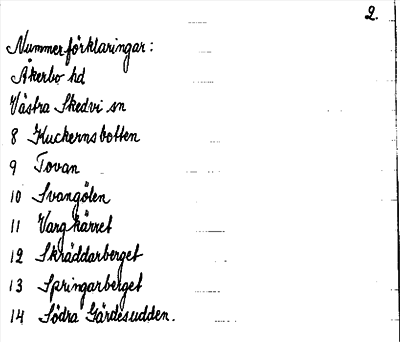 2.
Nummerförklaringar:
Åkerbo hd
Västra Skedvi sn
8 Kuckernsbotten
9 Tovan
10 Svangölen
11 Vargkärret
12 Skräddarberget
13 Springarberget
14 Södra Gärdesudden.